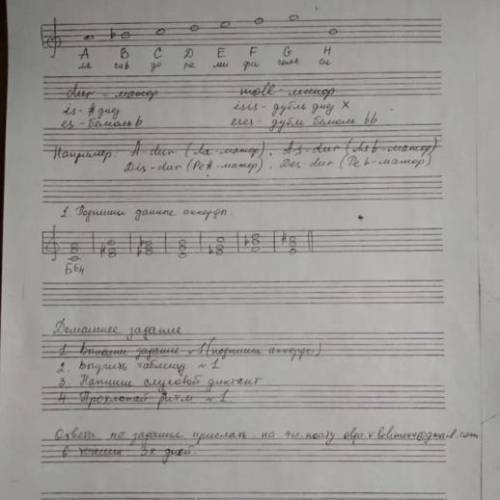 A B C D E F G H
ля сиb до ре ми фа соль си
dur - мажор moll - минор
is - # диез isis - дубль диез x
es - бемоль b eses - дубль бемоль bb
Например: A-dur (Ля-мажор), As-dur (Ляb-мажор)
Dis-dur (Ре#-мажор), Des-dur (Реb-мажор)
1. Подпиши данные аккорды.
Б64
Домашнее задание.
1. Выполни задание №1 (подпиши аккорды)
2. Выучить таблицу №1
3. Напиши слуховой диктант
4. Прохлопай ритм №1.
Ответы по заданию прислать на эл.почту
в течении 3х дней.